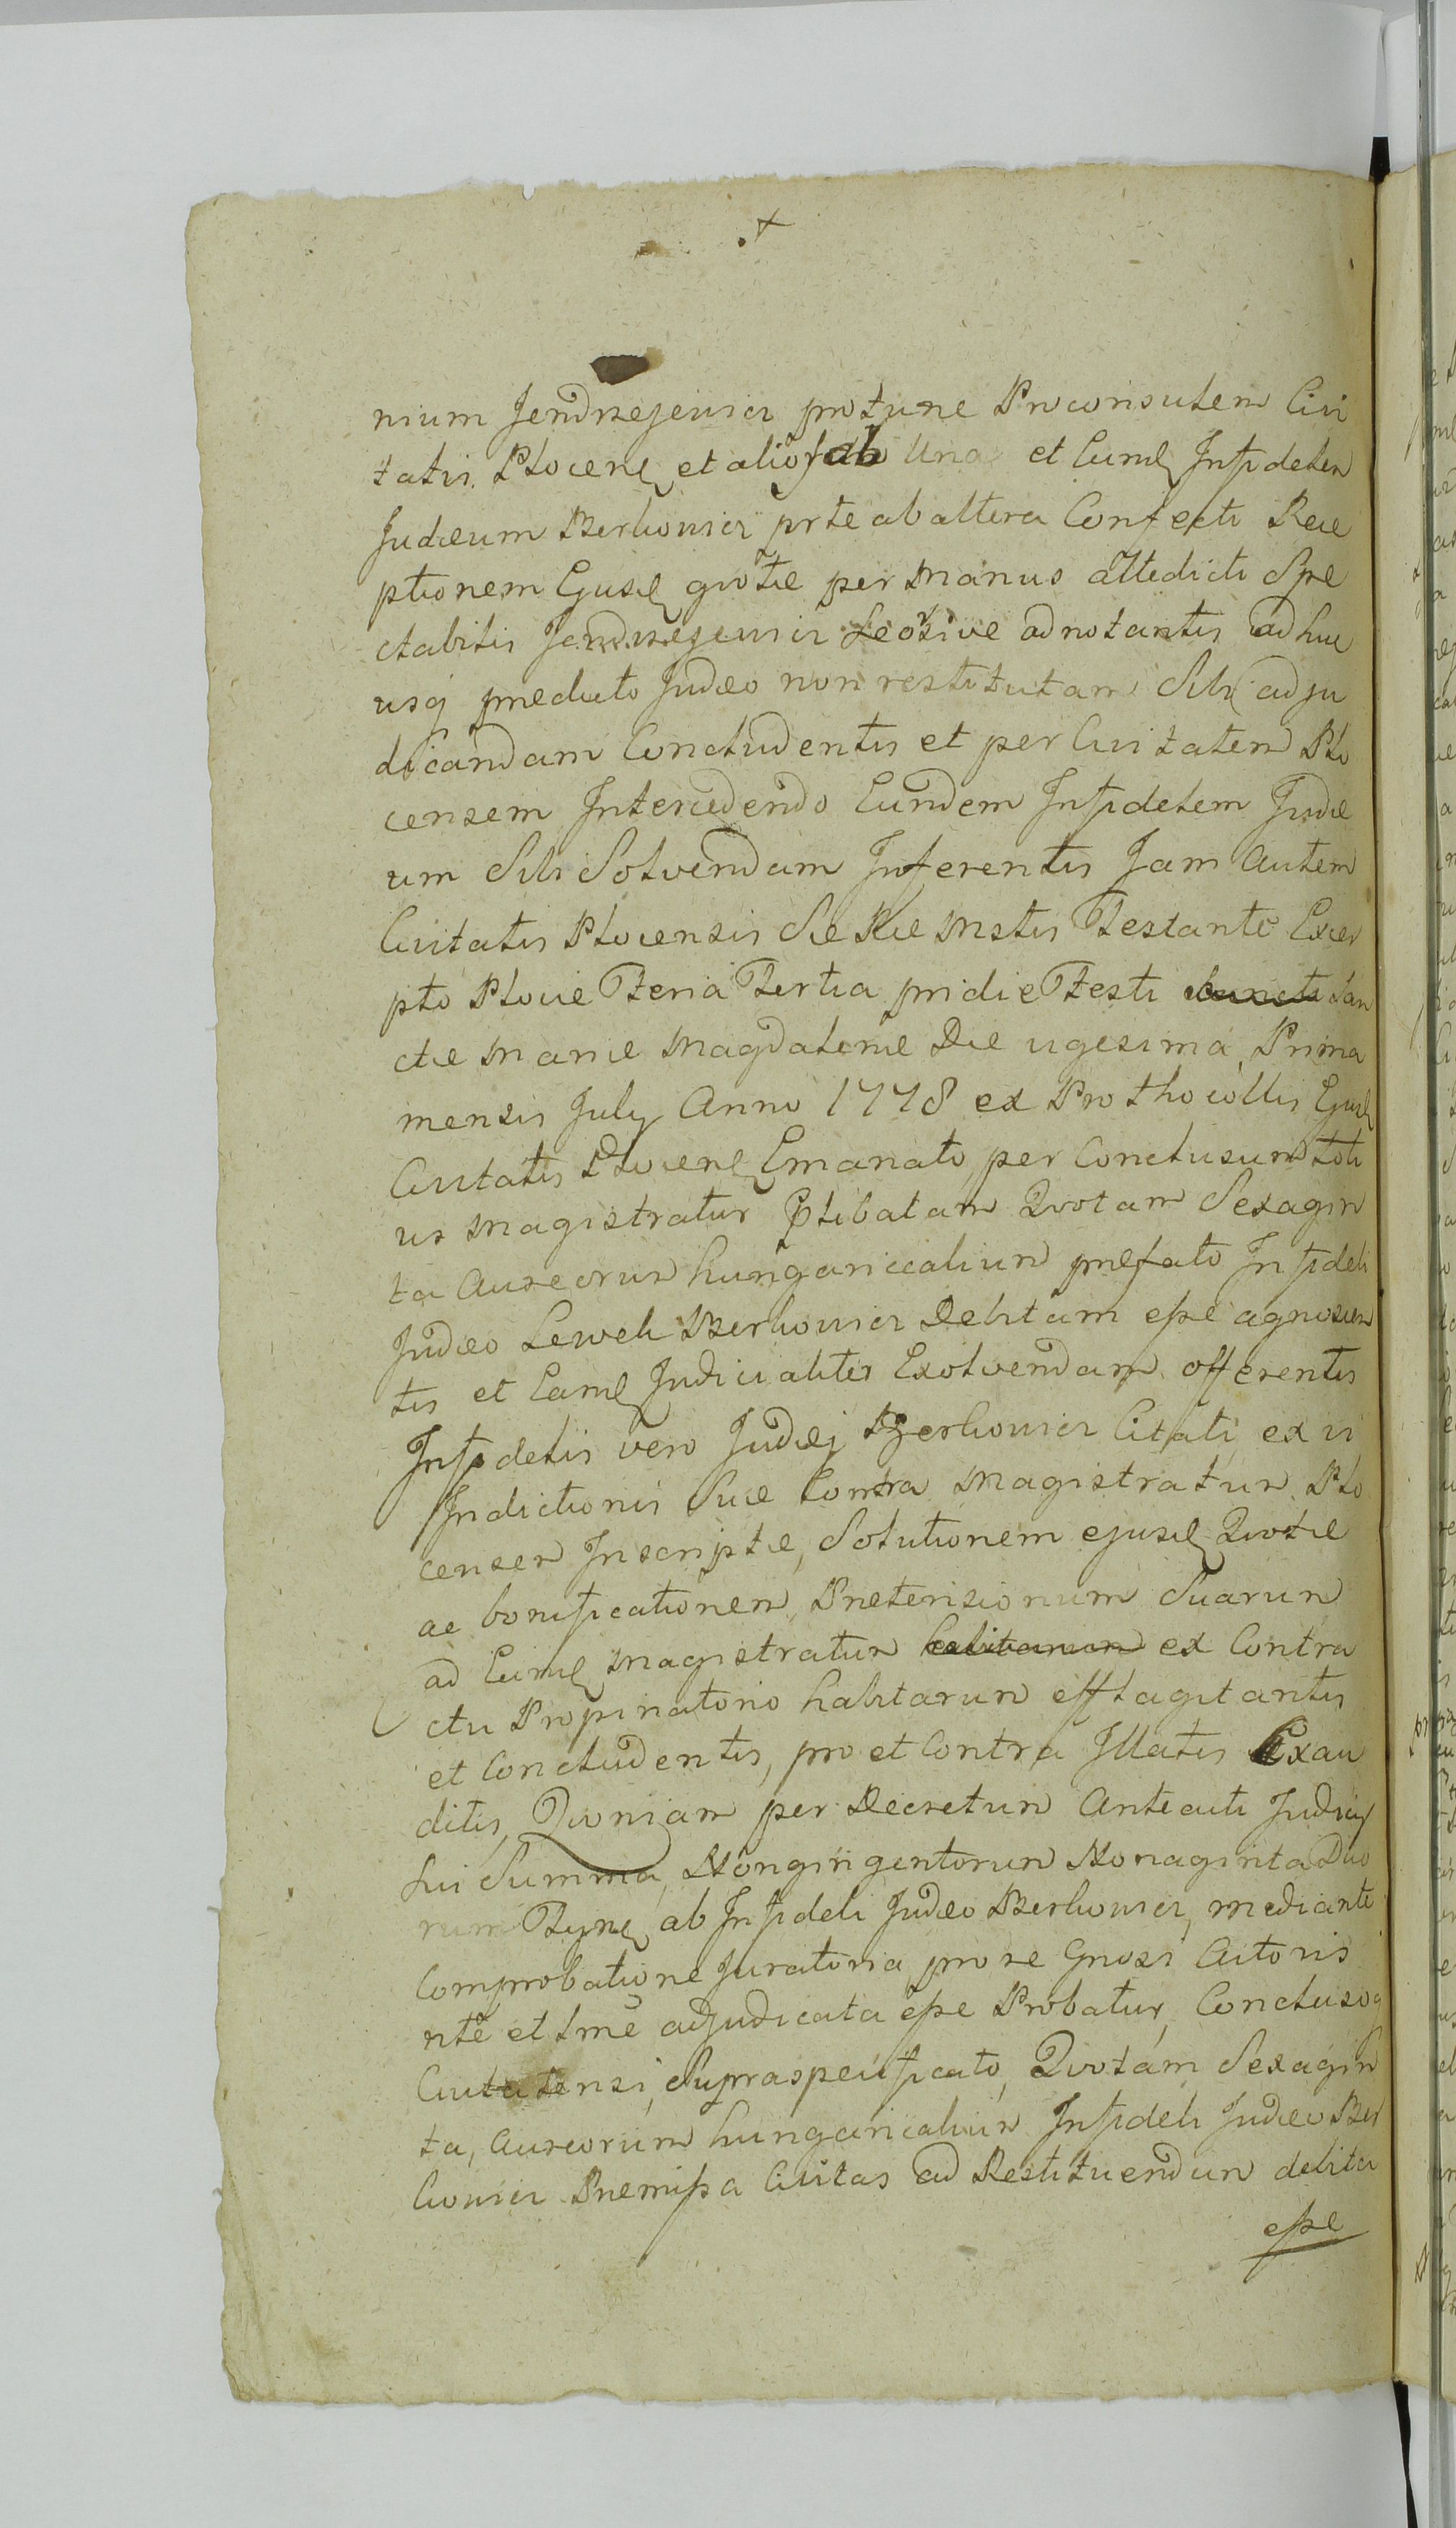 nium Jendrzejewicz protunc Proconsulem Civi
tatis Plocens et alios ab Una et Eund Infidelem
Judæum Berkowicz prte ab altera Confecti Rece
ptionem Ejusd qvotæ per Manus attedicti Spe
ctabilis Jendrzejewicz adnotantis adhuc
usq predicto Judæo non restitutam Sibi adju
dicandam Concludentis et per Civitatem Plo
censem Intercedendo Eundem Infidelem Judæ
um Sibi Solvendam Inferentis Jam autem
Civitatis Plocensis Se Rie Mstis Testante Excer
pto Plociæ Feria Tertia pridie Festi San
ctæ Mariæ Magdalenæ Die vigesima Prima
mensis July Anno 1778 ex Prothocollis Ejusd
Civitatis Plocens Emanato per Conclusum toti
us Magistratus Plibatam Qvotam Sexagin
ta Aureorum hungaricalium præfato Infideli
Judæo Lewek Berkowicz Debitam esse agnoscen
tis et Eamd Judicialiter Exolvendam offerentis
Infidelis vero Judæj Berkowicz Citati ex vi
Indictionis Suæ Contra Magistratum Plo
censem Inscriptæ, Solutionem ejusd Qvotæ
ac bonificationem Pretensionum Suarum
ad Eund Magistratum habitarum ex Contra
ctu Propinatorio habitarum efflagitantis
et Concludentis, pro et Contra Illatis Exau
ditis, Qvoniam per Decretum Antecati Judicij
hui Summa, Nongingentorum Nonaginta Duo
rum Tynf ab Infideli Judæo Berkowicz, mediante
Comprobatione Juratoria pro re Gnosi Actoris
nte et tme adjudicata esse Probatur, Conclusoq
Civitatensi, Supraspecificato, Qvotam Sexagin
ta, Aureorum hungaricalium Infideli Judæo Ber
kowicz Premissa Civitas ad Restituendum debita
esse